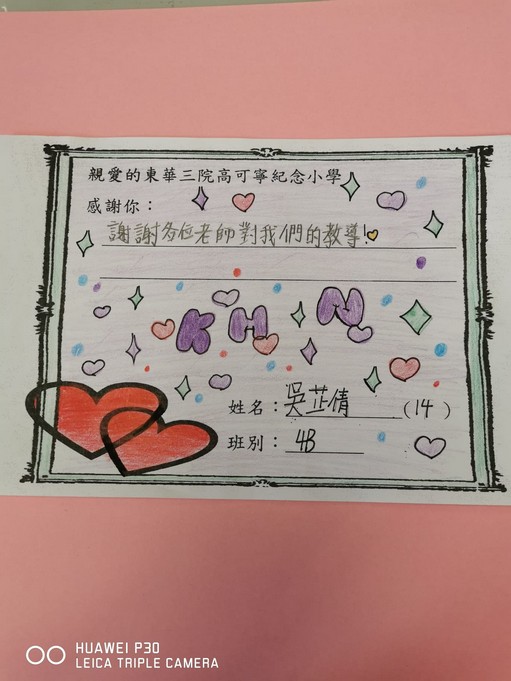 親愛的東華三院高可寧紀念小學
感謝你：
謝謝各位老師對我們的教導!
KHN
姓名：吳芷倩（14）
班別：4B
HUAWEI P30
LEICA TRIPLE CAMERA